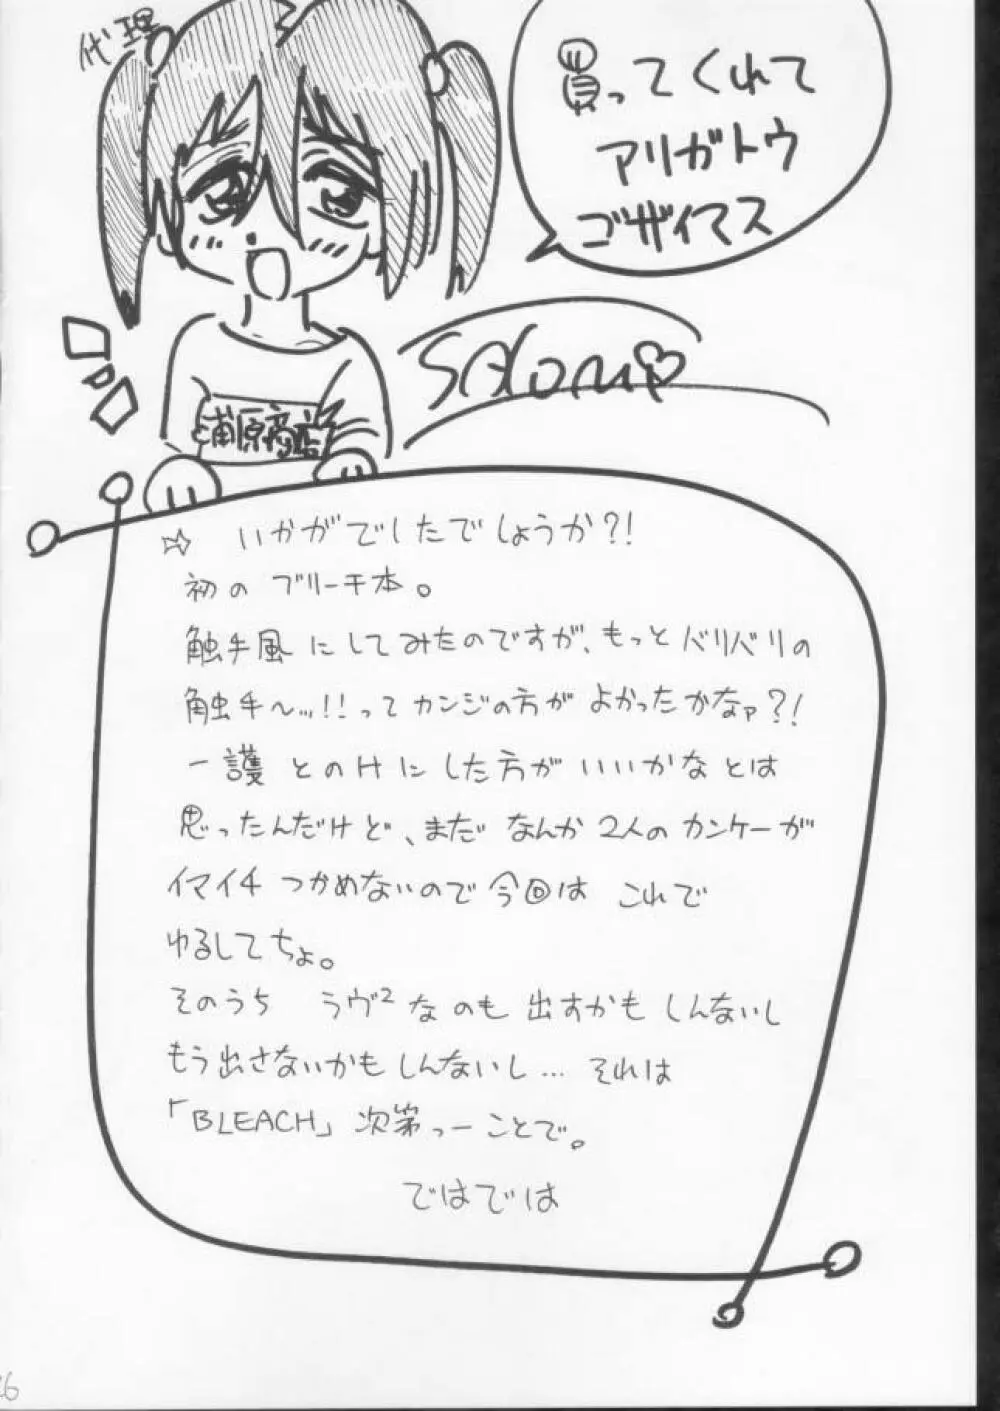 代理
買ってくれて
アリガトウ
ゴザイマス
浦原商店
☆ いかがでしたでしょうか?!
初の ブリーチ本。
触手風にしてみたのですが、もっとバリバリの
触手〜…!!ってカンジの方が よかったかなァ?!
一護 とのけにした方が いいかなとは
思ったんだけど、まだ なんか 2人の カンケーが
イマイチ つかめないので 今回は これで
ゆるしてちょ。
そのうち ラヴ²なのも 出すかも しんないし
もう出さないかも しんないし… それは
「BLEACH」次第っーことで。
ではでは
26